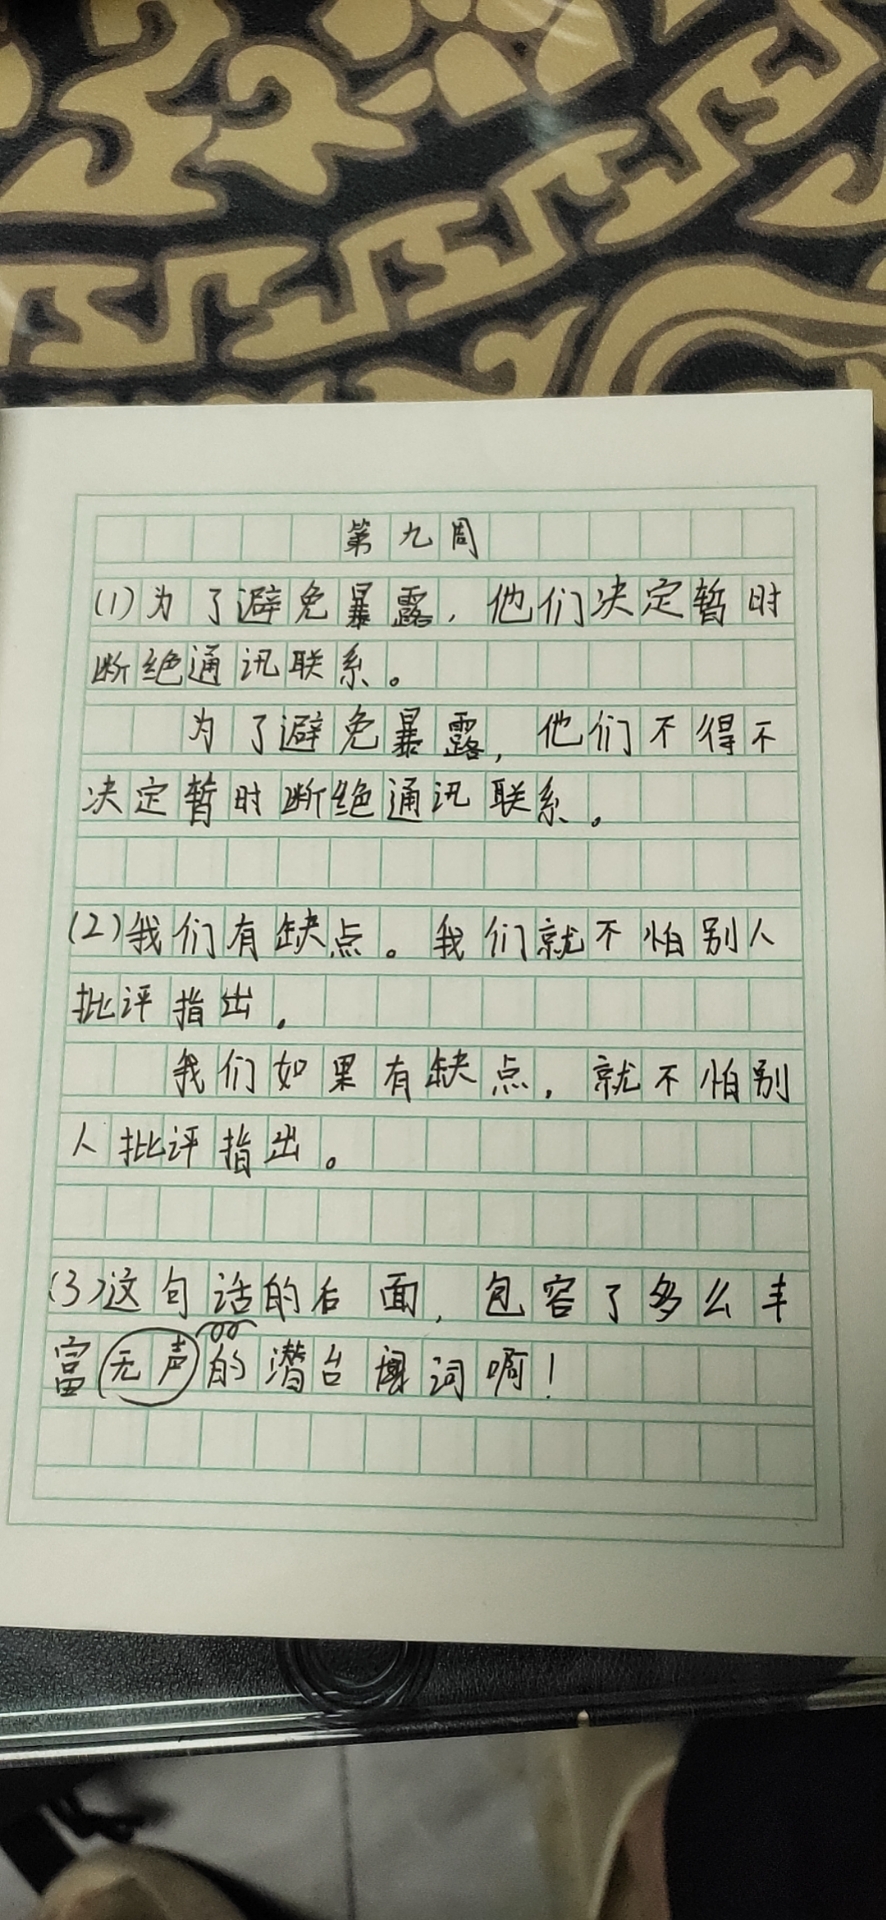 第九周
(1)为了避免暴露，他们决定暂时
断绝通讯联系。
为了避免暴露，他们不得不
决定暂时断绝通讯联系。
(2)我们有缺点。我们就不怕别人
批评指出。
我们如果有缺点，就不怕别
人批评指出。
(3)这句话的后面，包容了多么丰
富无声的潜台词啊！